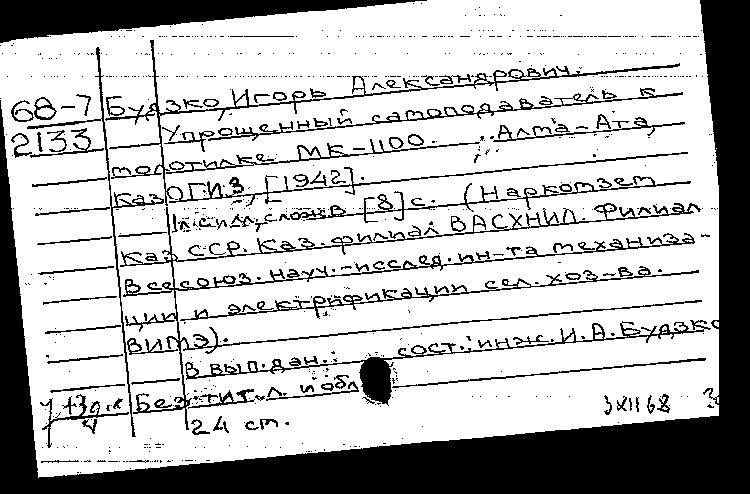 68-7 Будзко, Игорь Александрович.
2133 Упрощенный самоподаватель к
молотилке МК-1100. Алма-Ата,
КазОГИЗ, [1942].
1 л. слож. в [8] с. (Наркомзем
Каз ССР. Каз. филиал ВАСХНИЛ. Филиал
Всесоюз. науч.-исслед. ин-та механиза-
ции и электрификации сел. хоз-ва.
ВИМЭ).
В вып. дан.: сост.: инж. И. А. Будзко
Без тит. л. и обл
24 см.
3XII68